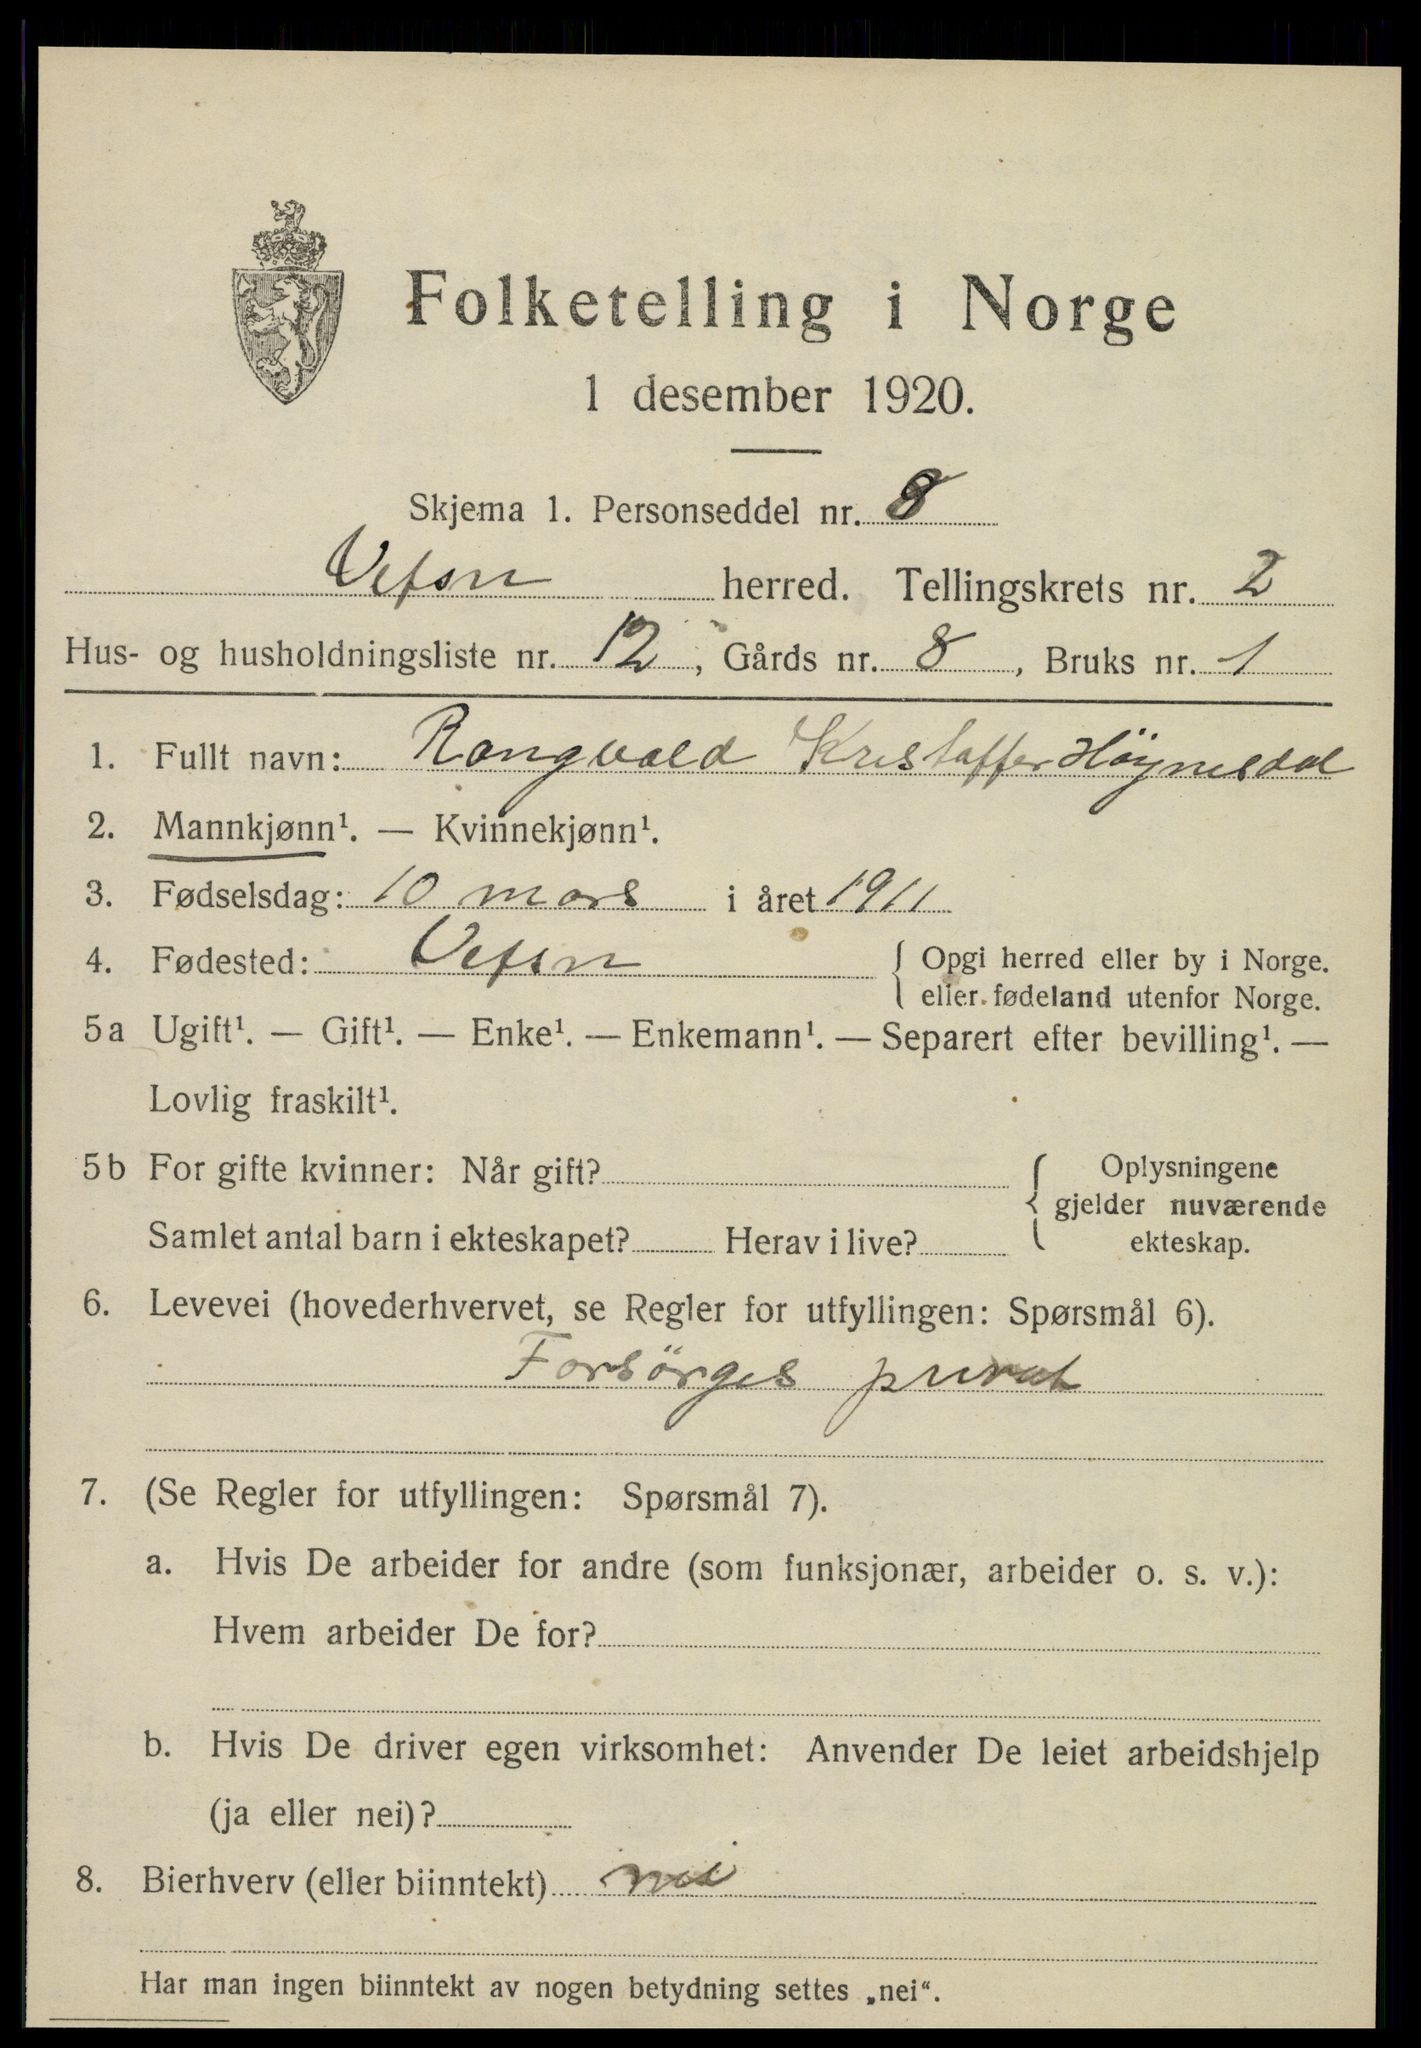 Folketelling i Norge
1 desember 1920.
Skjema 1. Personseddel nr. 8
Vefsn herred. Tellingskrets nr. 2
Hus- og husholdningsliste nr. 12, Gårds nr. 8, Bruks nr. 1
1. Fullt navn: Rangvald Kristoffer Höynesdal
2. Mannkjønn¹. — Kvinnekjønn¹.
3. Fødselsdag: 10 mars i året 1911
4. Fødested: Vefsn { Opgi herred eller by i Norge.
eller fødeland utenfor Norge.
5a Ugift¹. — Gift¹. — Enke¹. — Enkemann¹. — Separert efter bevilling¹. —
Lovlig fraskilt¹.
5b For gifte kvinner: Når gift? { Oplysningene
gjelder nuværende
Samlet antal barn i ekteskapet? Herav i live? ekteskap.
6. Levevei (hovederhvervet, se Regler for utfyllingen: Spørsmål 6).
Forsörges privat
7. (Se Regler for utfyllingen: Spørsmål 7).
a. Hvis De arbeider for andre (som funksjonær, arbeider o. s. v.):
Hvem arbeider De for?
b. Hvis De driver egen virksomhet: Anvender De leiet arbeidshjelp
(ja eller nei)?
8. Bierhverv (eller biinntekt) nei
Har man ingen biinntekt av nogen betydning settes „nei“.